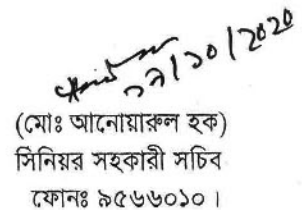 ২৭/১০/2020
(মোঃ আনোয়ারুল হক)
সিনিয়র সহকারী সচিব
ফোনঃ ৯৫৬৬০১০।